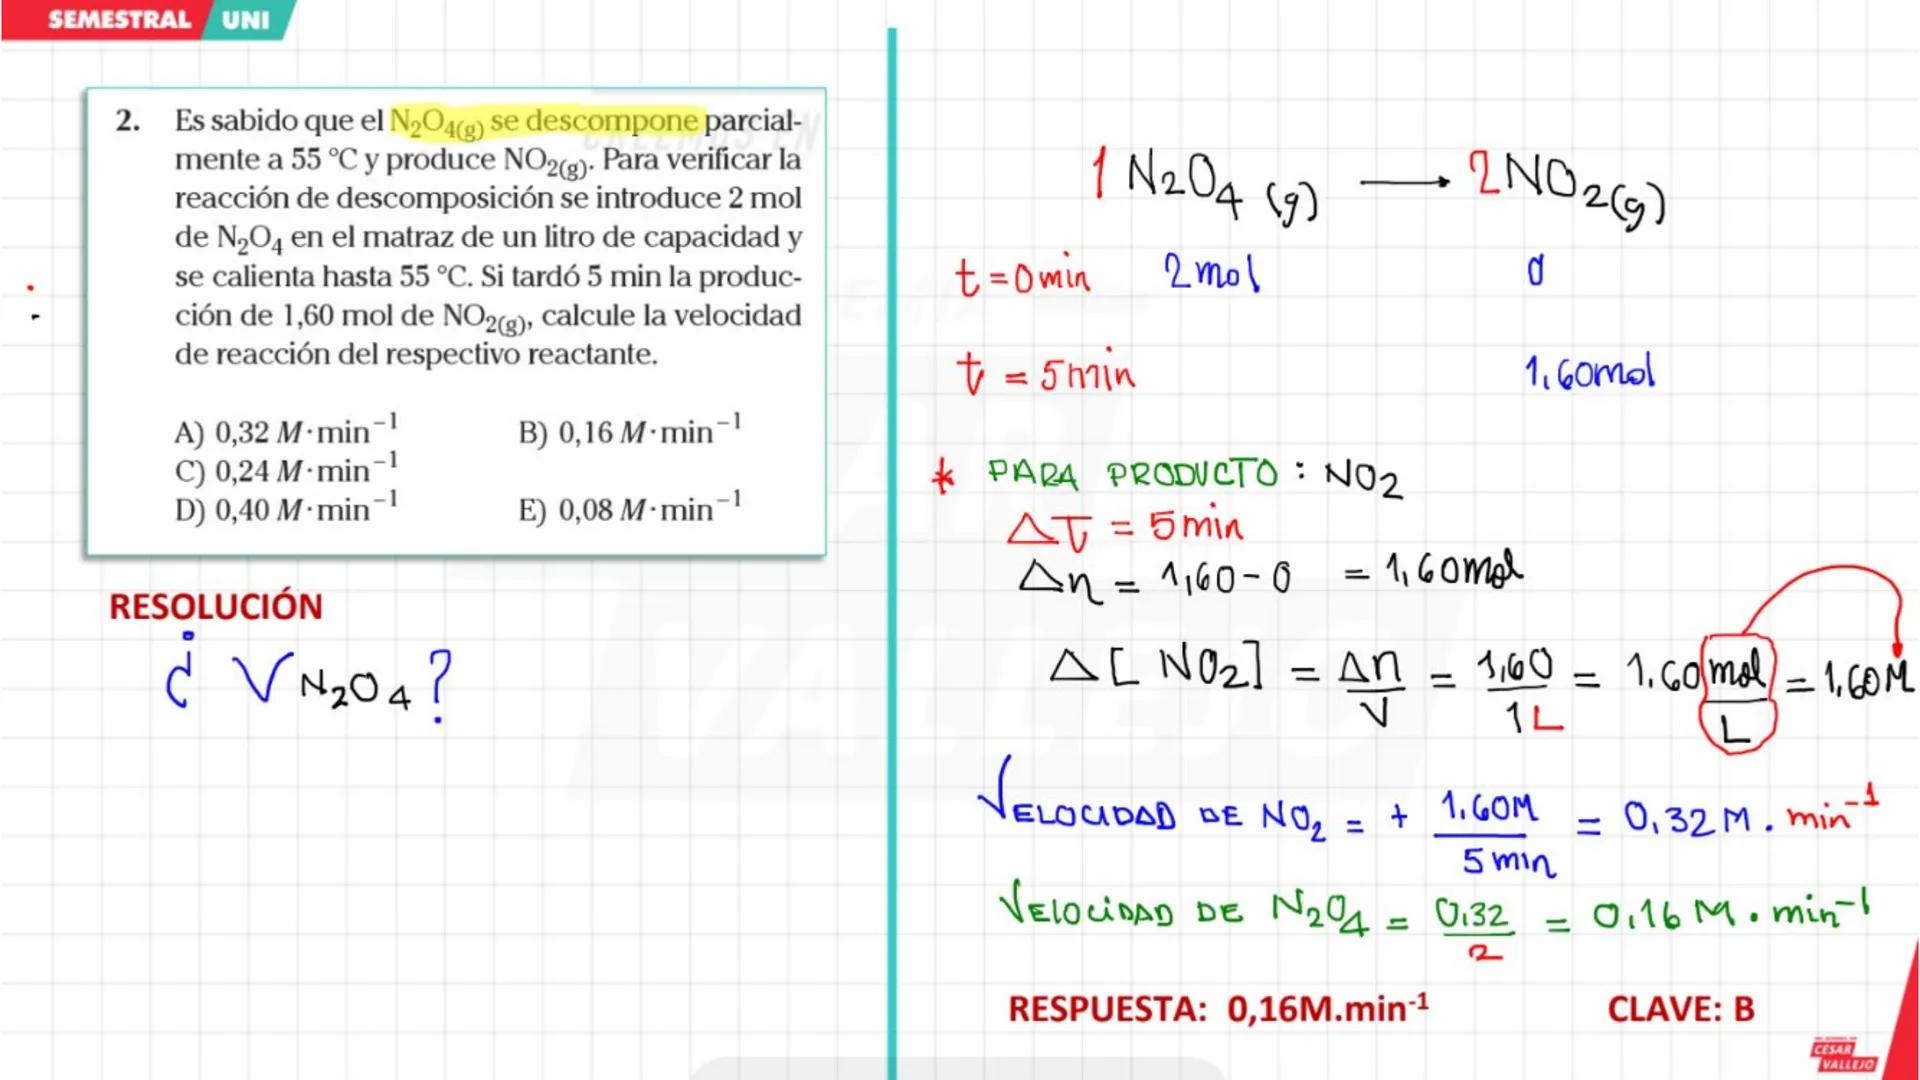 SEMESTRAL UNI
2. Es sabido que el N₂O₄(g) se descompone parcial-
mente a 55 °C y produce NO₂(g). Para verificar la
reacción de descomposición se introduce 2 mol
de N₂O₄ en el matraz de un litro de capacidad y
se calienta hasta 55 °C. Si tardó 5 min la produc-
ción de 1,60 mol de NO₂(g), calcule la velocidad
de reacción del respectivo reactante.
A) 0,32 M·min⁻¹ B) 0,16 M·min⁻¹
C) 0,24 M·min⁻¹
D) 0,40 M·min⁻¹ E) 0,08 M·min⁻¹
RESOLUCIÓN
¿ V N₂O₄ ?
1 N₂O₄ (g) → 2NO₂(g)
t = 0min 2mol 0
t = 5min 1,60mol
* PARA PRODUCTO : NO₂
Δt = 5min
Δn = 1,60 - 0 = 1,60mol
Δ[NO₂] = Δn/V = 1,60/1L = 1.60 mol/L = 1,60M
VELOCIDAD DE NO₂ = + 1.60M/5min = 0,32M . min⁻¹
VELOCIDAD DE N₂O₄ = 0,32/2 = 0,16 M . min⁻¹
RESPUESTA: 0,16M.min⁻¹ CLAVE: B
CÉSAR
VALLEJO